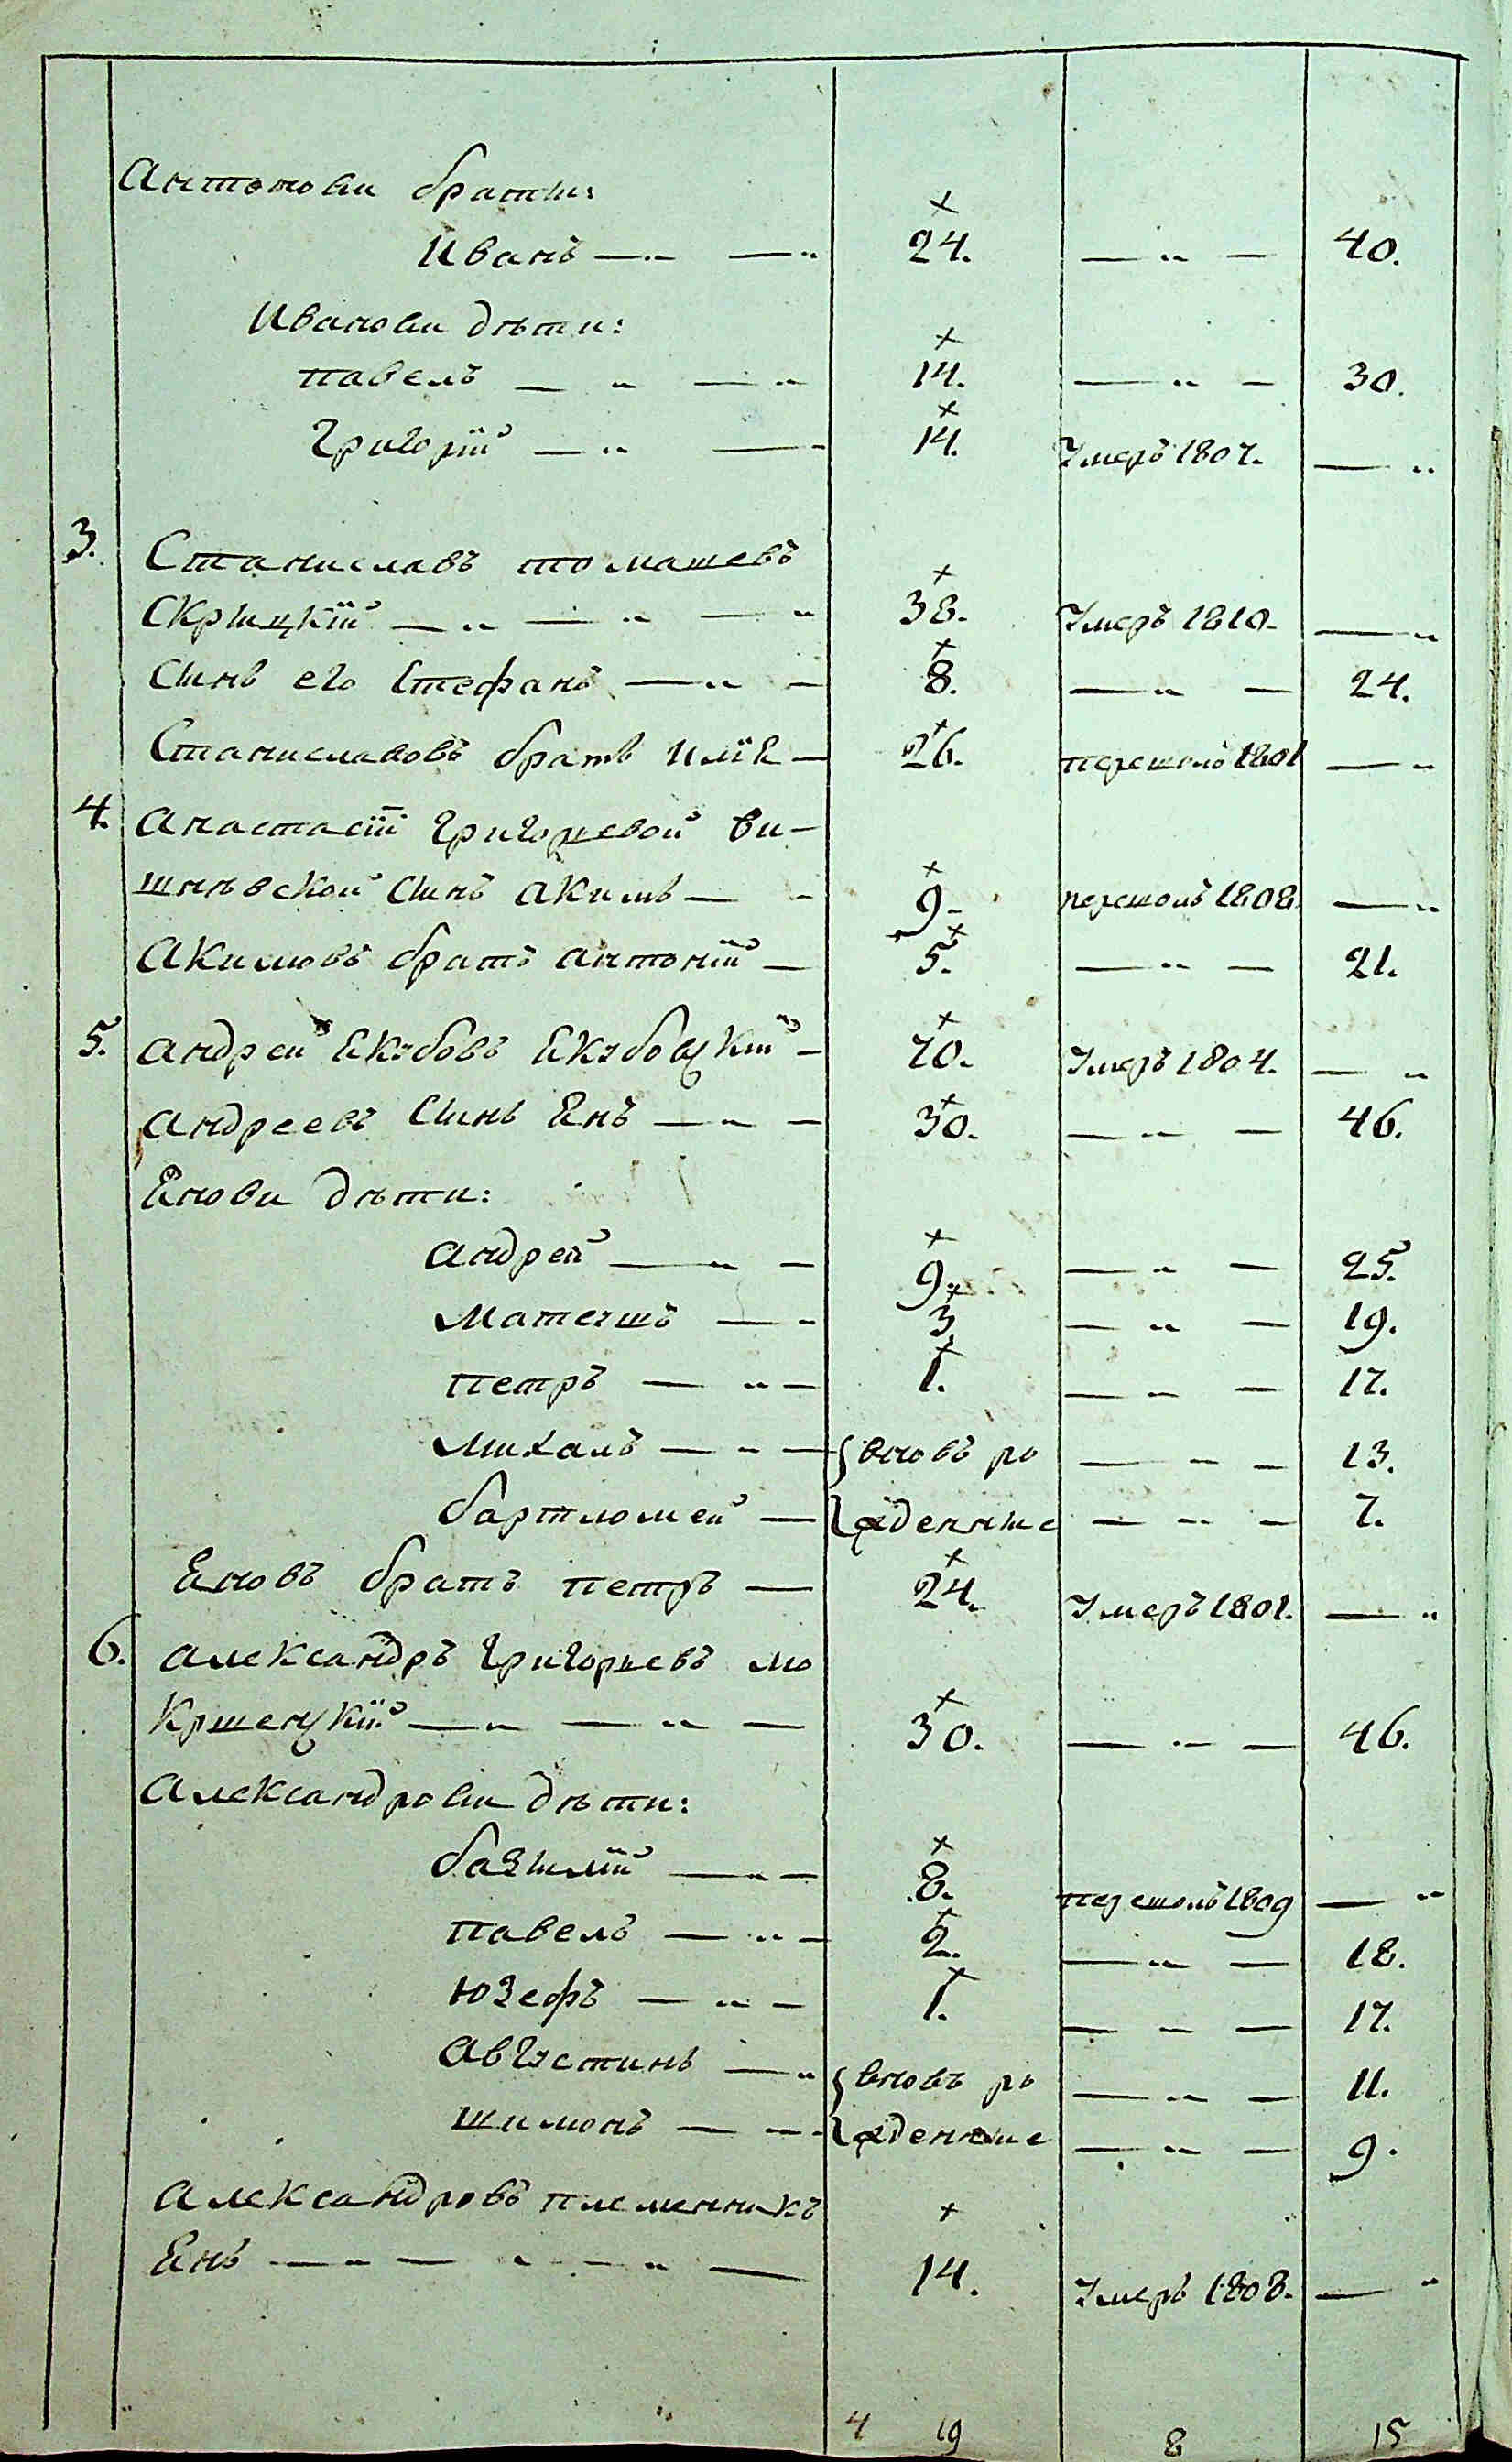 Антонови братья:
Иванъ — „ — „ 24. — „ — 40.
Иванови дѣти:
Павелъ — „ — „ 14. — „ — 30.
Григорій — „ — 14. Умеръ 1807. — „
3. Станиславъ Томашевъ
Скрицкій — „ — „ — „ 38. Умеръ 1810. — „
Синъ его Стефанъ — „ — 8. — „ — 24.
Станиславовъ братъ — 26. перешолъ 1801 — „
4. Анастасіи Григорьевой Ви-
шнѣвской Синъ Акимъ — - 9. перешолъ 1808. — „
Акимовъ братъ Антоній — 5. — „ — 21.
5. Андрей Екубовъ Екубовцкій — 70. Умеръ 1804. — „
Андреевъ Синъ Янъ — „ — 30. — „ — 46.
Янови дѣти:
Андрей — „ — 9. — „ — 25.
Матеушъ — „ 3. — „ — 19.
Петръ — „ — 1. — „ — 17.
Михалъ — „ — вновь ро — „ — 13.
Бартломей — жденные — „ — 7.
Яновъ братъ Петръ — 24. Умеръ 1801. — „
6. Александръ Григорьевъ Мо
кршецкій — „ — „ — 30. — „ — 46.
Александрови дѣти:
Базилій — „ — 8. перешолъ 1809 — „
Павелъ — „ — 2. — „ — 18.
Юзефъ — „ — 1. — „ — 17.
Августинъ — „ вновь ро — „ — 11.
Шимонъ — „ - жденные — „ — 9.
Александровъ племенникъ
Янъ — „ — „ — „ — 14. Умеръ 1808. — „
4 19 8 15